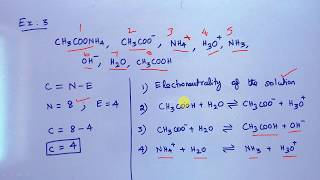 Ex. 3
1 2 3 4 5
CH₃COONH₄, CH₃COO⁻, NH₄⁺, H₃O⁺, NH₃,
6 7 8
OH⁻, H₂O, CH₃COOH
C = N-E
N = 8, E = 4
C = 8-4
C = 4
1) Electroneutrality of the solution ✓
2) CH₃COOH + H₂O ⇌ CH₃COO⁻ + H₃O⁺
3) CH₃COO⁻ + H₂O ⇌ CH₃COOH + OH⁻
4) NH₄⁺ + H₂O ⇌ NH₃ + H₃O⁺